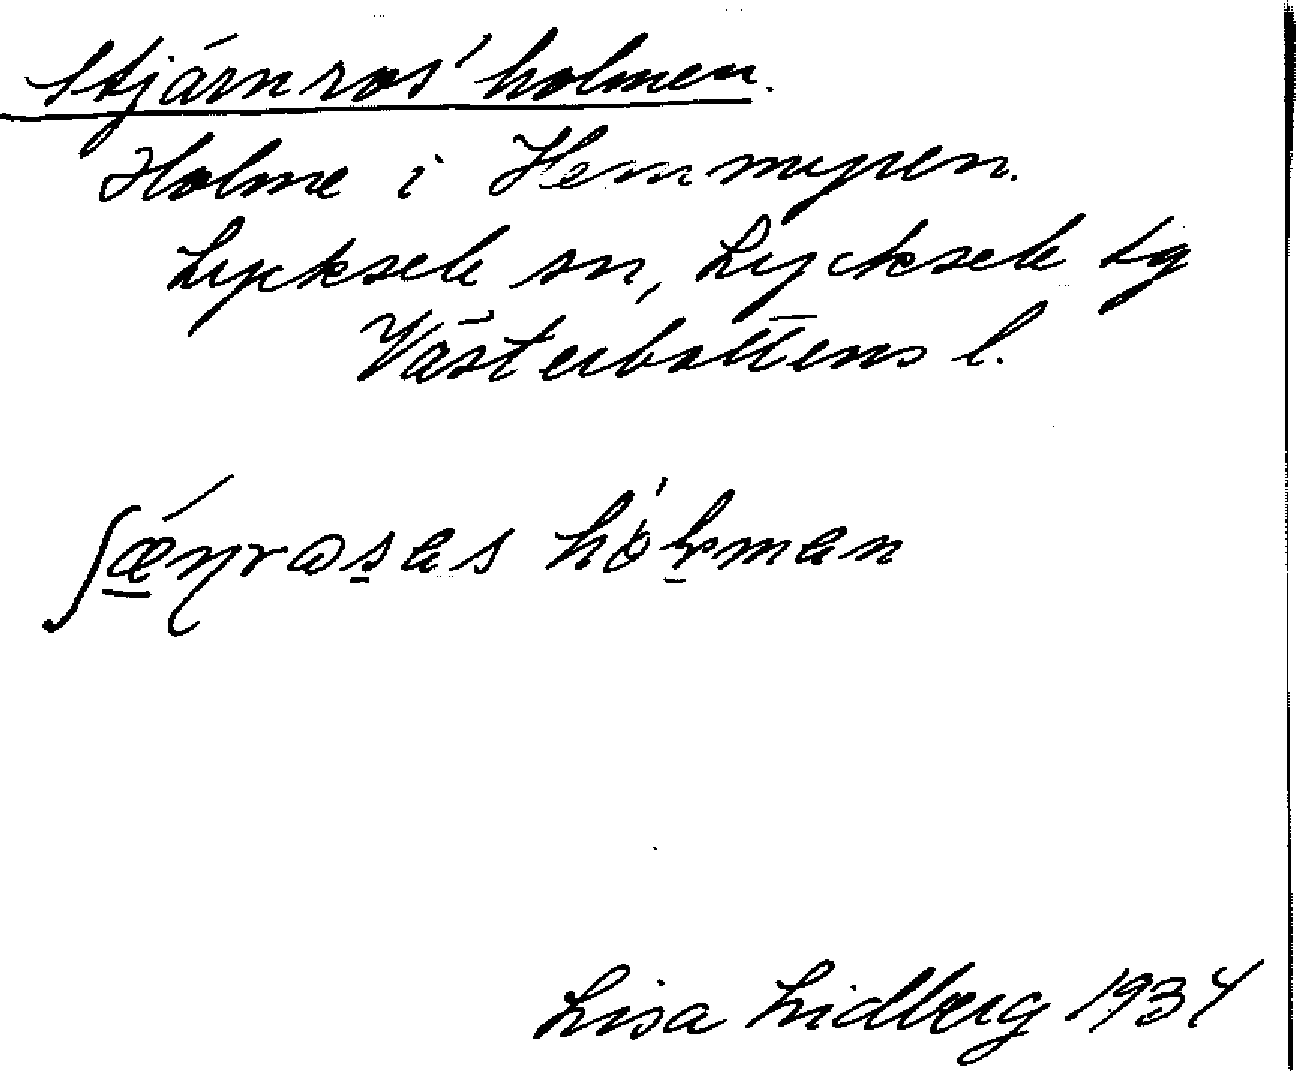 Stjärnros' holmen.
Holme i Hemmyren.
Lycksele sn, Lycksele tg
Västerbottens l.
ʃæɳrosas hólman
Lisa Lidberg 1934